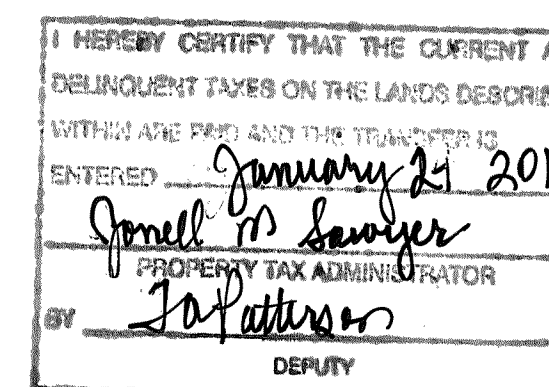 I HEREBY CERTIFY THAT THE CURRENT A
DELINQUENT TAXES ON THE LANDS DESCRIBE
WITHIN ARE PAID AND THE TRANSFER IS
ENTERED January 24 201
Jonell M Sawyer
PROPERTY TAX ADMINISTRATOR
BY Patterson
DEPUTY